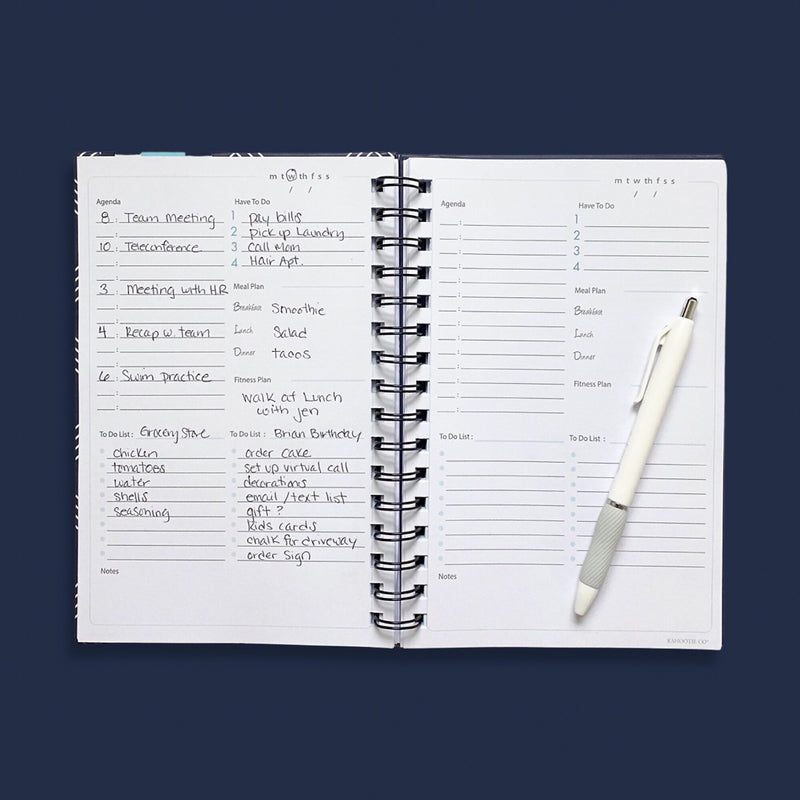 m t w th f s s
/ /
Agenda
8 : Team Meeting
:
10 : Teleconference
:
:
3 : Meeting with HR
:
:
4 : Recap w. team
:
:
6 : Swim practice
:
:
Have To Do
1 pay bills
2 pick up Laundry
3 Call Mom
4 Hair Apt.
Meal Plan
Breakfast Smoothie
Lunch Salad
Dinner tacos
Fitness Plan
walk at Lunch
with jen
To Do List : Grocery Store
chicken
tomatoes
water
shells
seasoning
To Do List : Brian Birthday
order cake
set up virtual call
decorations
email / text list
gift ?
kids cards
chalk for driveway
order Sign
Notes
m t w th f s s
/ /
Agenda
:
:
:
:
:
:
:
:
:
:
:
:
:
:
Have To Do
1
2
3
4
Meal Plan
Breakfast
Lunch
Dinner
Fitness Plan
To Do List :
To Do List :
Notes
KAHOOTIE CO